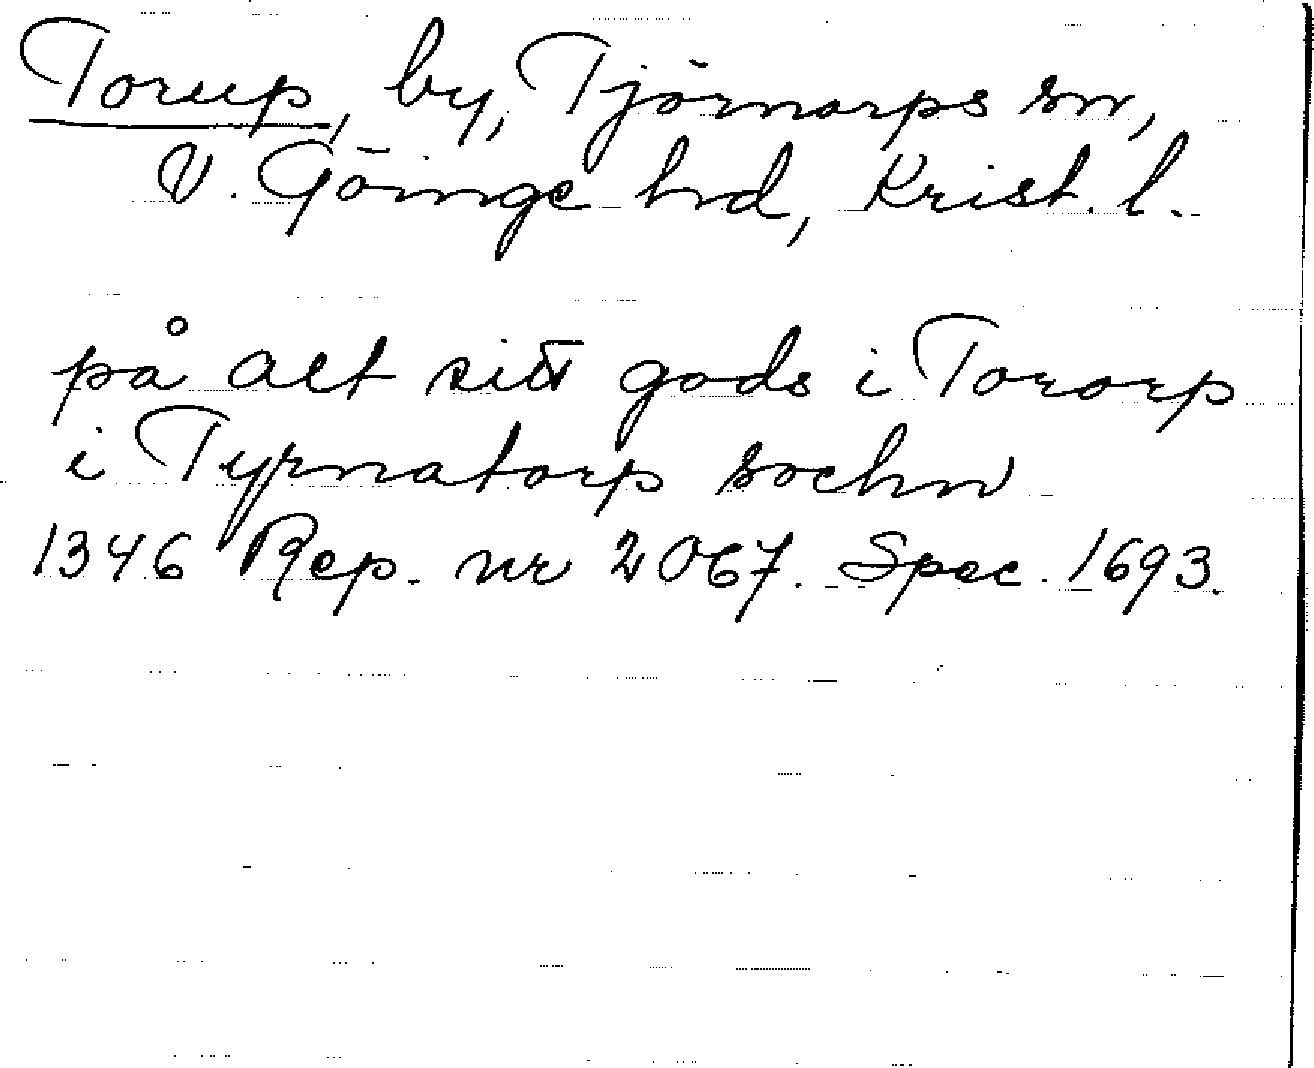 Torup, by, Tjörnarps sn,
V. Göinge hd, Krist. l.
på alt sitt gods i Tororp
i Tyrnatorp sochn
1346 Rep. nr 2067. Spec. 1693.